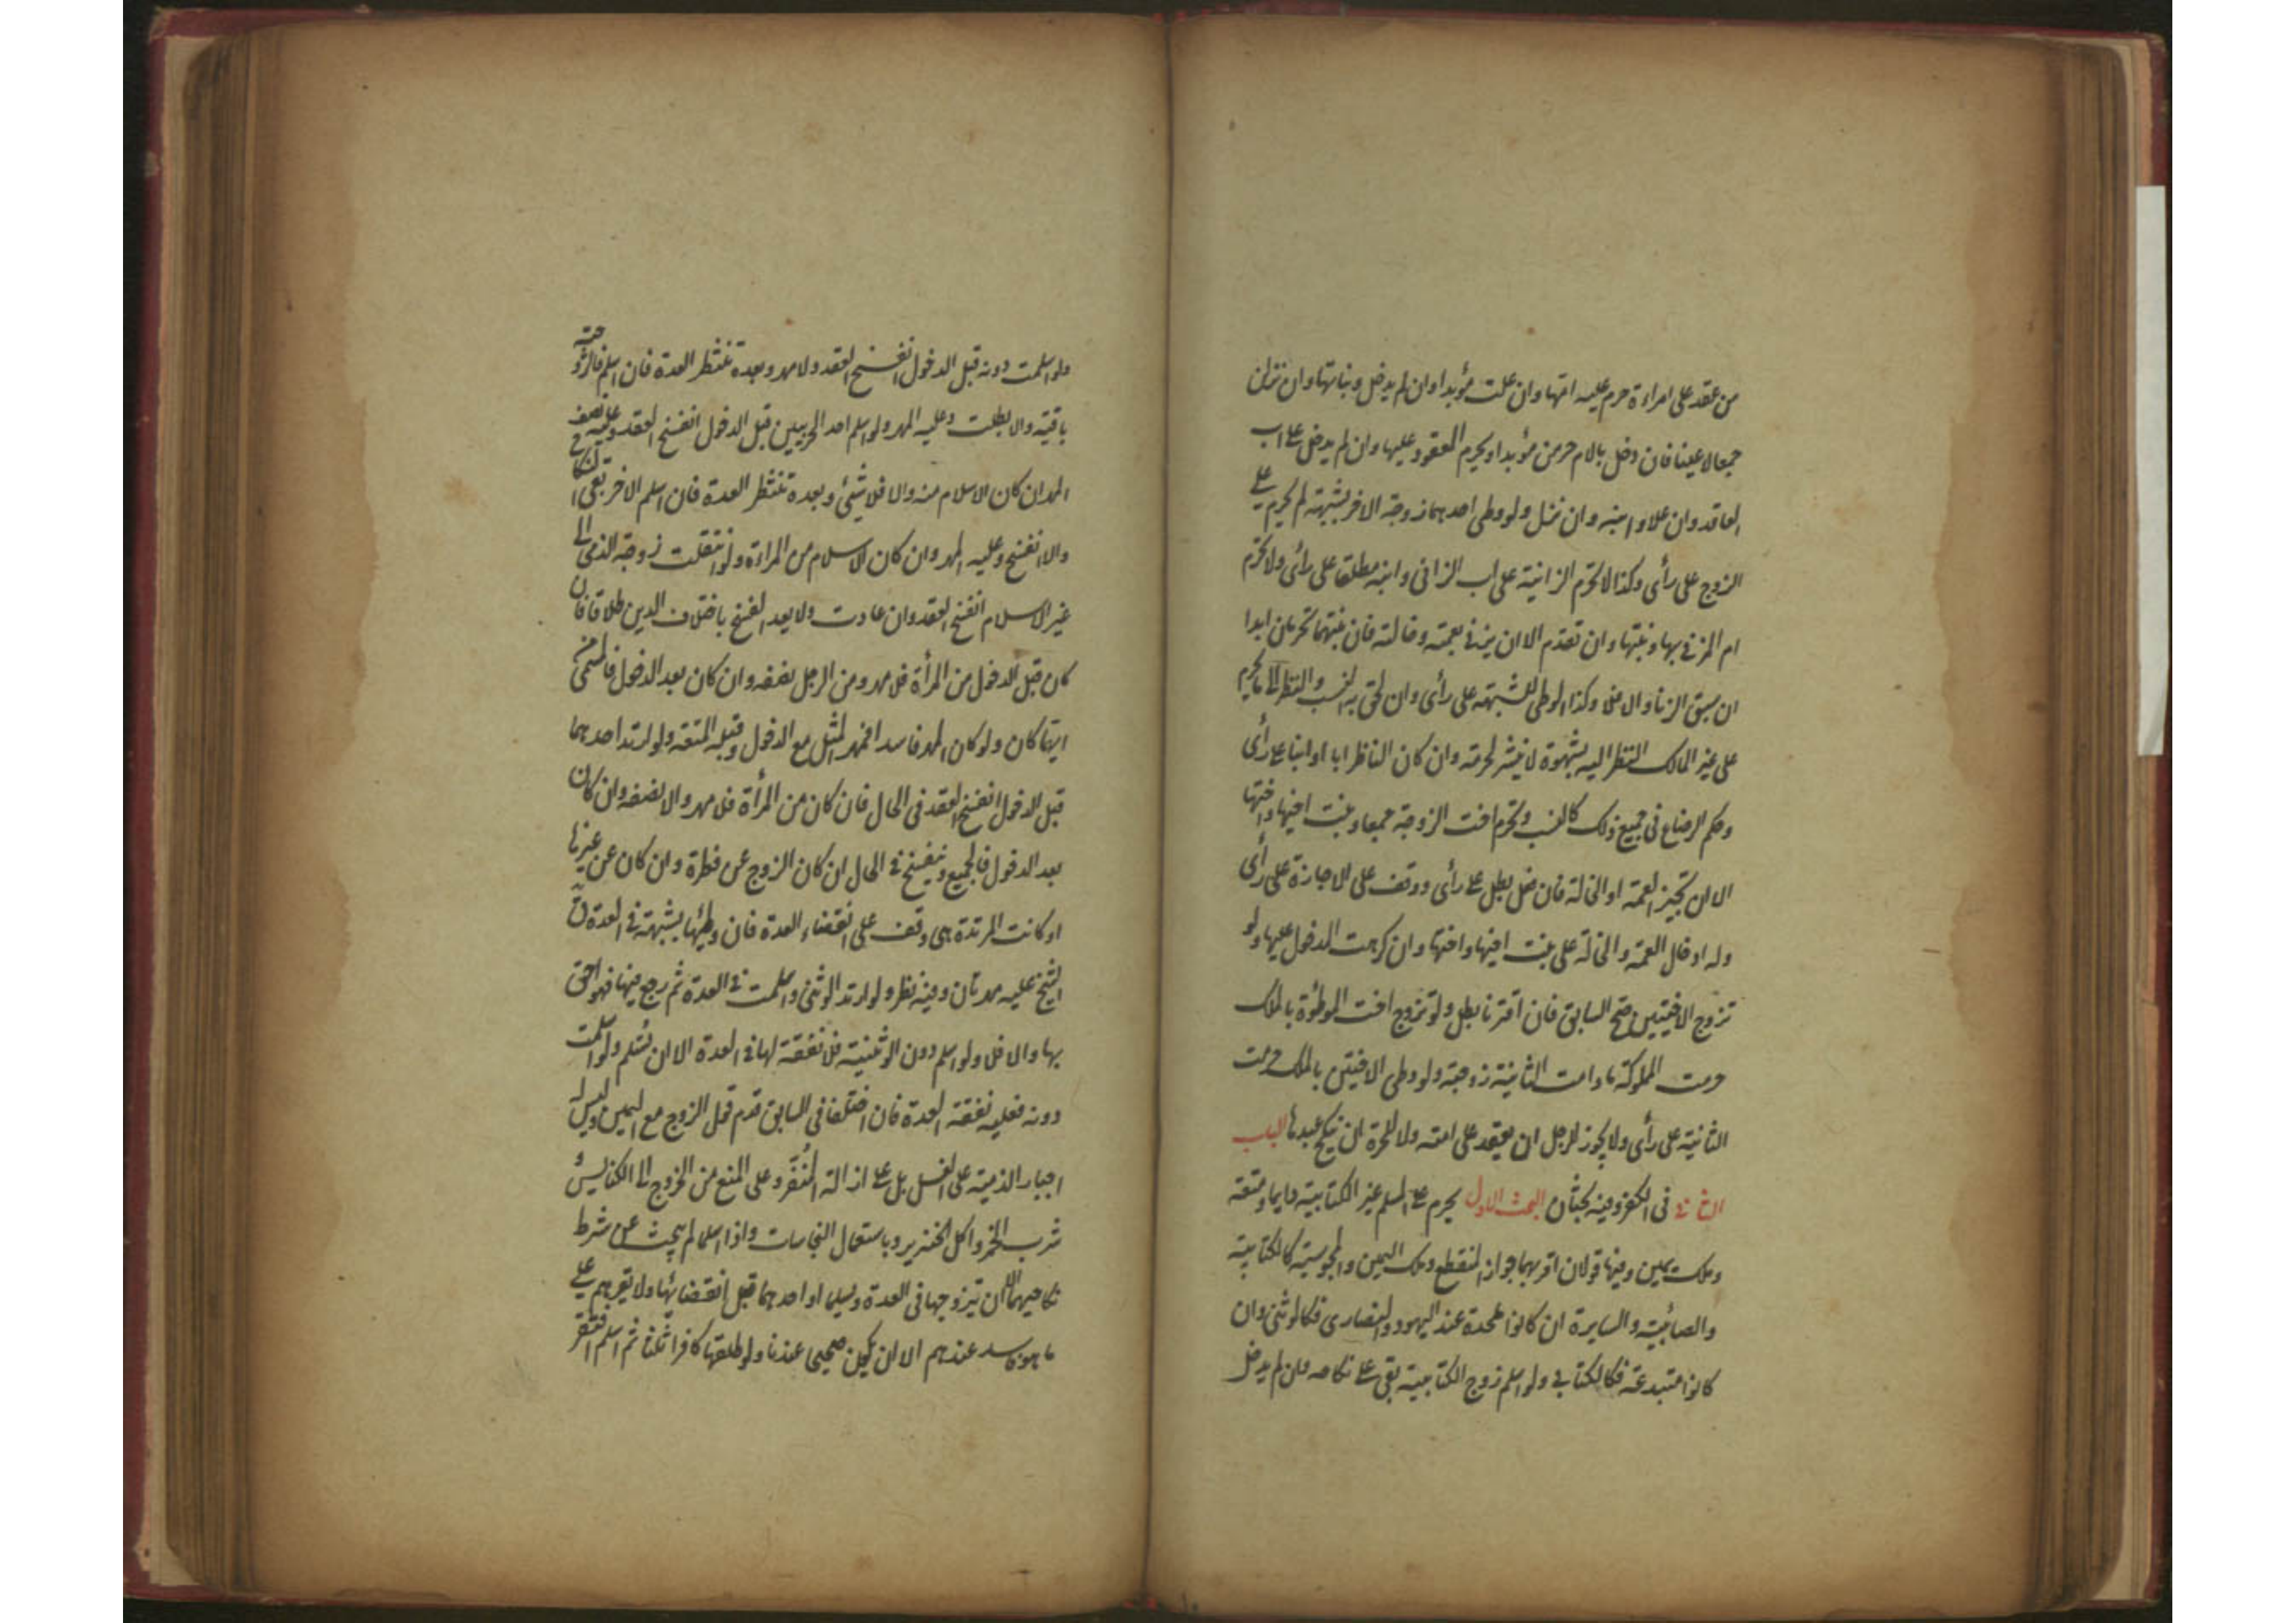 من عقد على امراءة حرم عليه امّها وان علت مؤبدا وان لم يدخل وبناتها وان نزلن
جمعا لا عينا فان دخل بالام حرمن مؤبدا ويحرم المعقود عليها وان لم يدخل على اب
العاقد وان علا وابنه وان نزل ولو وطى احدهما زوجة الاخر بشبهة لم يحرم على
الزوج على رأى وكذا لا تحرّم الزانية على اب الزانى وابنه مطلقا على رأى ولا تحرّم
ام المزنى بها وبنتها وان تقدّم الا ان يزنى بعمته وخالته فان بنتهما تحرمان ابدا
ان سبق الزنا والا فلا وكذا الوطى للشبهة على رأى وان لحق به النسب والنظر الى ما يحرم
على غير المالك النظر اليه بشهوة لا ينشر الحرمة وان كان الناظر ابا او ابنا على رأى
وحكم الرضاع فى جميع ذلك كالنسب وتحرّم اخت الزوجة جمعا وبنت اخيها واختها
الا ان تجيز العمة او الخالة فان فعل بطل على رأى ووقف على الاجازة على رأى
وله ادخال العمة والخالة على بنت اخيها واختها وان كرهت المدخول عليها ولو
تزوج الاختين صحّ السابق فان اقترنا بطل ولو تزوج اخت الموطؤة بالملك
حرمت المملوكة ما دامت الثانية زوجته ولو وطى الاختين بالملك حرمت
الثانية على رأى ولا يجوز للرجل ان يعقد على امته ولا للحرة ان ينكح عبدها الباب
الثانى فى الكفر وفيه بحثان البحث الاول يحرم على المسلم غير الكتابية دايما ومتعة
وملك يمين وفيها قولان اقربهما جواز المنقطع وملك اليمين والمجوسية كالكتابية
والصائبية والسايرة ان كانوا ملحدة عند اليهود والنصارى فكالوثنى وان
كانوا مبتدعة فكالكتابى ولو اسلم زوج الكتابية بقى على نكاحه وان لم يدخل
ولو اسلمت دونه قبل الدخول انفسخ العقد ولا مهر وبعده تنتظر العدة فان اسلم فالزوجية
باقية والا بطلت وعليه المهر ولو اسلم احد الحربيين قبل الدخول انفسخ العقد وعليه نصف
المهر ان كان الاسلام منه والا فلا شيئ وبعده تنتظر العدة فان اسلم الاخر بقى النكاح
والا انفسخ وعليه المهر وان كان الاسلام من المراءة ولو انتقلت زوجة الذمى الى
غير الاسلام انفسخ العقد وان عادت ولا يعد الفسخ باختلاف الدين طلاقا فان
كان قبل الدخول من المرأة فلا مهر ومن الرجل نصفه وان كان بعد الدخول فالمسمى
ايّما كان ولو كان المهر فاسدا فمهر المثل مع الدخول وقبله المتعة ولو ارتد احدهما
قبل الدخول انفسخ العقد فى الحال فان كان من المرأة فلا مهر والا نصفه وان كان
بعد الدخول فالجميع وينفسخ فى الحال ان كان الزوج عن فطرة وان كان عن غيرها
او كانت المرتدة هى وقف على انقضاء العدة فان وطئها بشبهة فى العدة قال
الشيخ عليه مهر ثان وفيه نظر ولو ارتد الوثنى واسلمت فى العدة ثم رجع فيها فهو احق
بها والا فلا ولو اسلم دون الوثنية فلا نفقة لها فى العدة الا ان تسلم ولو اسلمت
دونه فعليه نفقة العدة فان اختلفا فى السابق قدم قول الزوج مع اليمين وليس له
اجبار الذمية على الغسل بل على ازالة المُنَفِّر وعلى المنع من الخروج الى الكنايس
شرب الخمر واكل الخنزير وباستعمال النجاسات واذا اسلما لم يبحث عن شرط
نكاحيهما الا ان يتزوجها فى العدة ويسلما او احدهما قبل انقضائها ولا يقرهم على
ما هو فاسد عندهم الا ان يكون صحيحا عندنا ولو طلقها كافرا ثلثا ثم اسلم افتقر